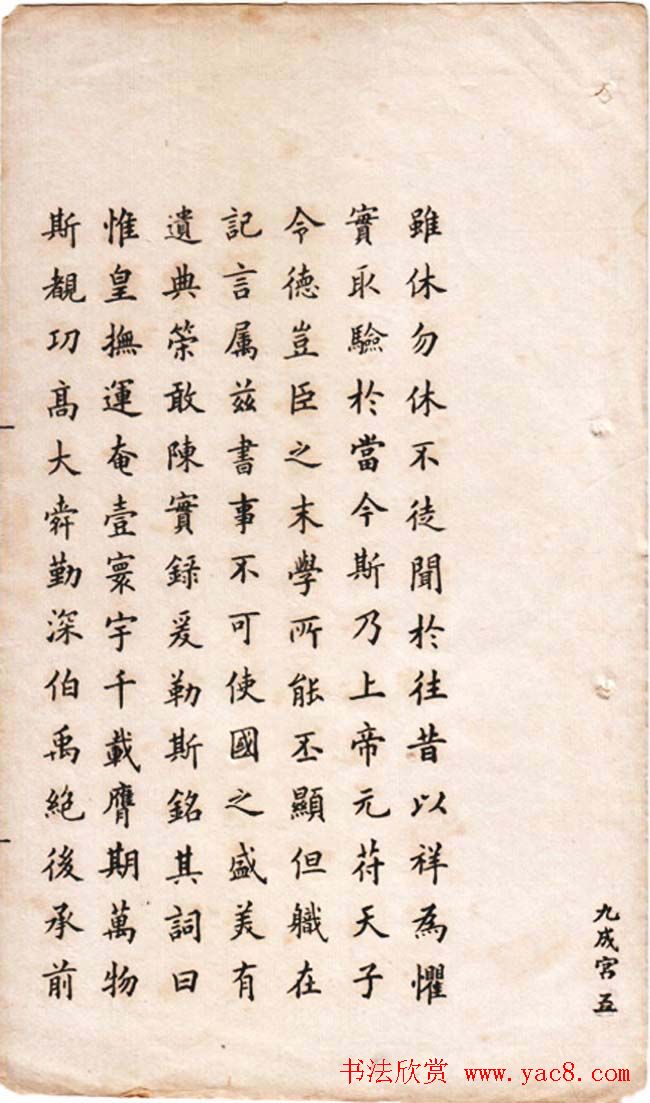 九成宮五
雖休勿休不徒聞於往昔以祥為懼
實取驗於當今斯乃上帝元符天子
令德豈臣之末學所能丕顯但職在
記言属茲書事不可使國之盛美有
遺典策敢陳實錄爰勒斯銘其詞曰
惟皇撫運奄壹寰宇千載膺期萬物
斯覩功髙大舜勤深伯禹絕後承前
书法欣赏 www.yac8.com